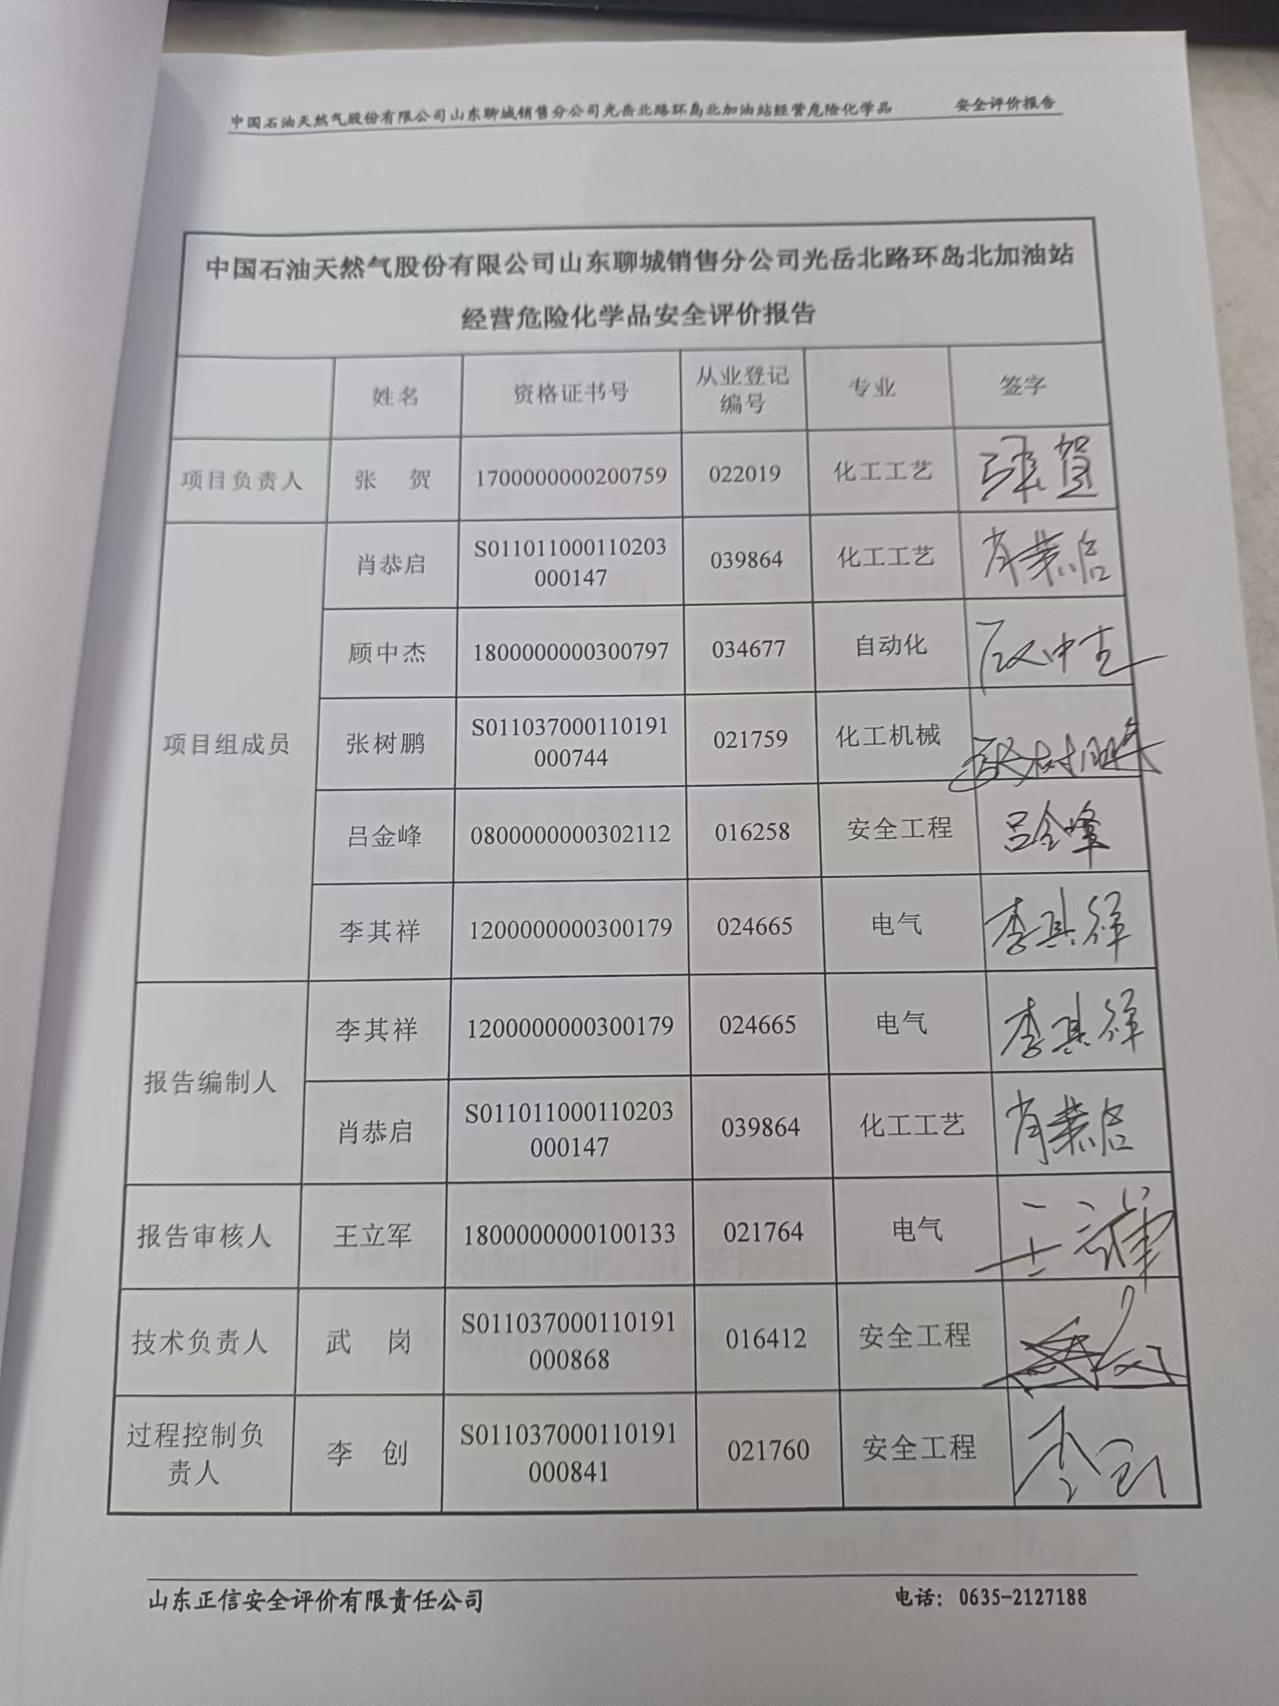 中国石油天然气股份有限公司山东聊城销售分公司光岳北路环岛北加油站经营危险化学品 安全评价报告
中国石油天然气股份有限公司山东聊城销售分公司光岳北路环岛北加油站
经营危险化学品安全评价报告
姓名 资格证书号 从业登记编号 专业 签字
项目负责人 张 贺 1700000000200759 022019 化工工艺 张贺
项目组成员
肖恭启 S011011000110203000147 039864 化工工艺 肖恭启
顾中杰 1800000000300797 034677 自动化 顾中杰
张树鹏 S011037000110191000744 021759 化工机械 张树鹏
吕金峰 0800000000302112 016258 安全工程 吕金峰
李其祥 1200000000300179 024665 电气 李其祥
报告编制人
李其祥 1200000000300179 024665 电气 李其祥
肖恭启 S011011000110203000147 039864 化工工艺 肖恭启
报告审核人 王立军 1800000000100133 021764 电气 王立军
技术负责人 武 岗 S011037000110191000868 016412 安全工程
过程控制负责人 李 创 S011037000110191000841 021760 安全工程 李创
山东正信安全评价有限责任公司 电话：0635-2127188